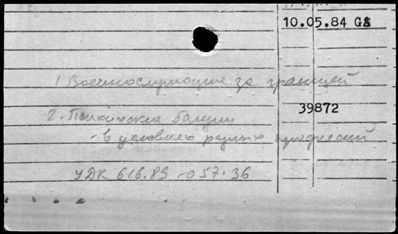 10.05.84 GS
1 Военнослужащие за границей
39872
2. Психические болезни
- в условиях разных профессий
УДК 616.89-057.36